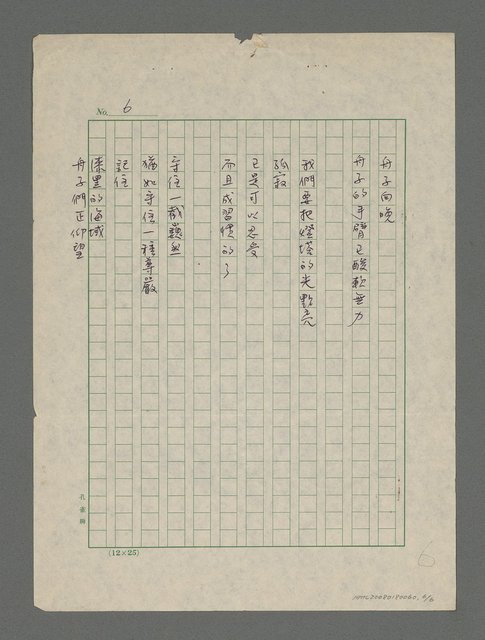 No. 6
舟子向晚
舟子的手臂已酸軟無力
我們要把燈塔的光點亮
孤寂
已是可以忍受
而且成習慣的了
守住一截
猶如守住一種尊嚴
記住
漆黑的海域
舟子們正仰望
孔雀牌
(12×25)
6
NMTL20080180060, 6/6